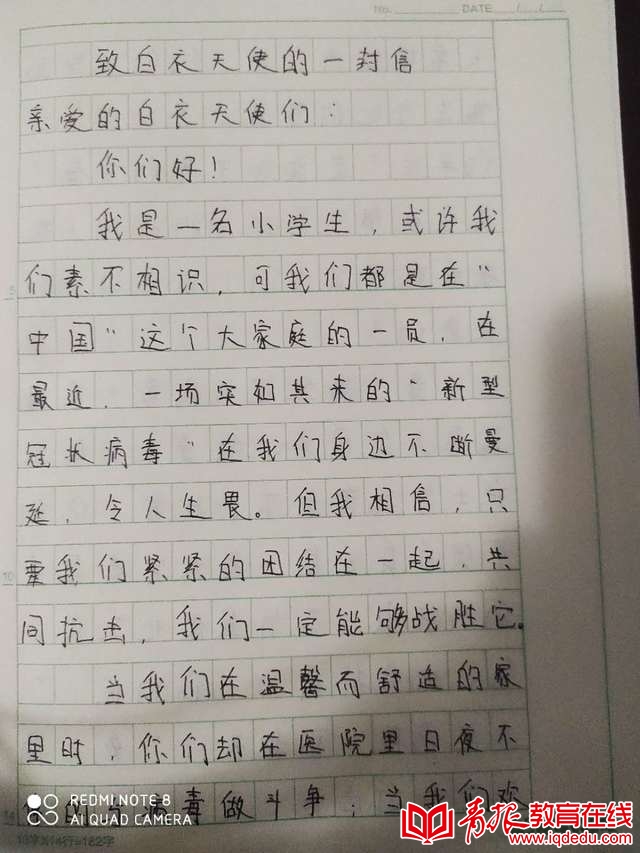 No. DATE / /
致白衣天使的一封信
亲爱的白衣天使们：
你们好！
我是一名小学生，或许我
们素不相识，可我们都是在“
中国”这个大家庭的一员，在
最近，一场突如其来的“新型
冠状病毒”在我们身边不断曼
延，令人生畏。但我相信，只
要我们紧紧的团结在一起，共
同抗击，我们一定能够战胜它。
当我们在温馨而舒适的家
里时，你们却在医院里日夜不
的与病毒做斗争；当我们欢
5
10
14
13字X14行=182字
REDMI NOTE 8
AI QUAD CAMERA
青报教育在线
www.iqdedu.com